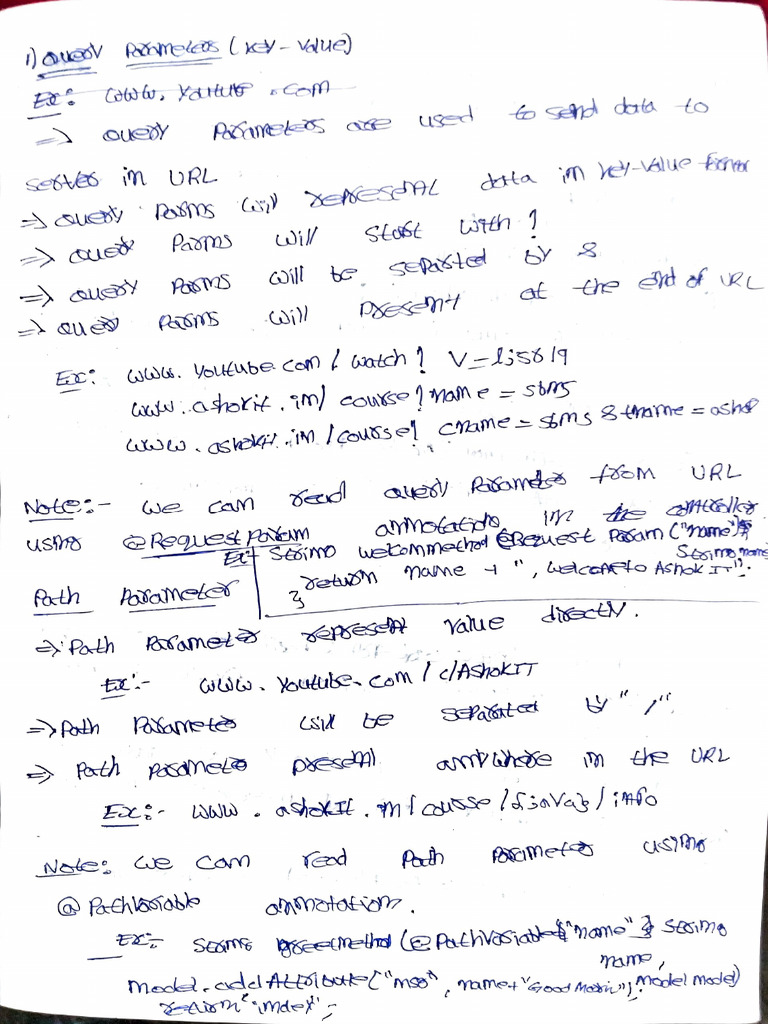 1) Query Parameters (Key-Value)
Ex: www.youtube.com
=> Query Parameters are used to send data to
server in URL
=> Query Parms will represent data in key-value format
=> Query Parms will start with ?
=> Query Parms will be separted by &
=> Query Parms will present at the end of URL
Ex: www.youtube.com/watch? V=
www.ashokit.in/course?name=sbms
www.ashokit.in/course? cname=sbms & tname=ashok
Note:- we can read query Parameter from URL
using @RequestParam annotation in the controller
Ex: String welcommethod @Request Param ("name")
String name
return name + ", welcome to Ashok IT";
}
Path Parameter
=> Path Parameter represent value directly.
Ex:- www.youtube.com/c/AshokIT
=> Path Parameter will be separated by "/"
=> Path Parameter present anywhere in the URL
Ex:- www.ashokIT.in/course/ /info
Note: we can read Path Parameter using
@PathVariable annotation.
Ex:- String greetmethod (@PathVariable "name" String
name,
model model)
model.addAttribute("msg", name+"Good Morn");
return "index";